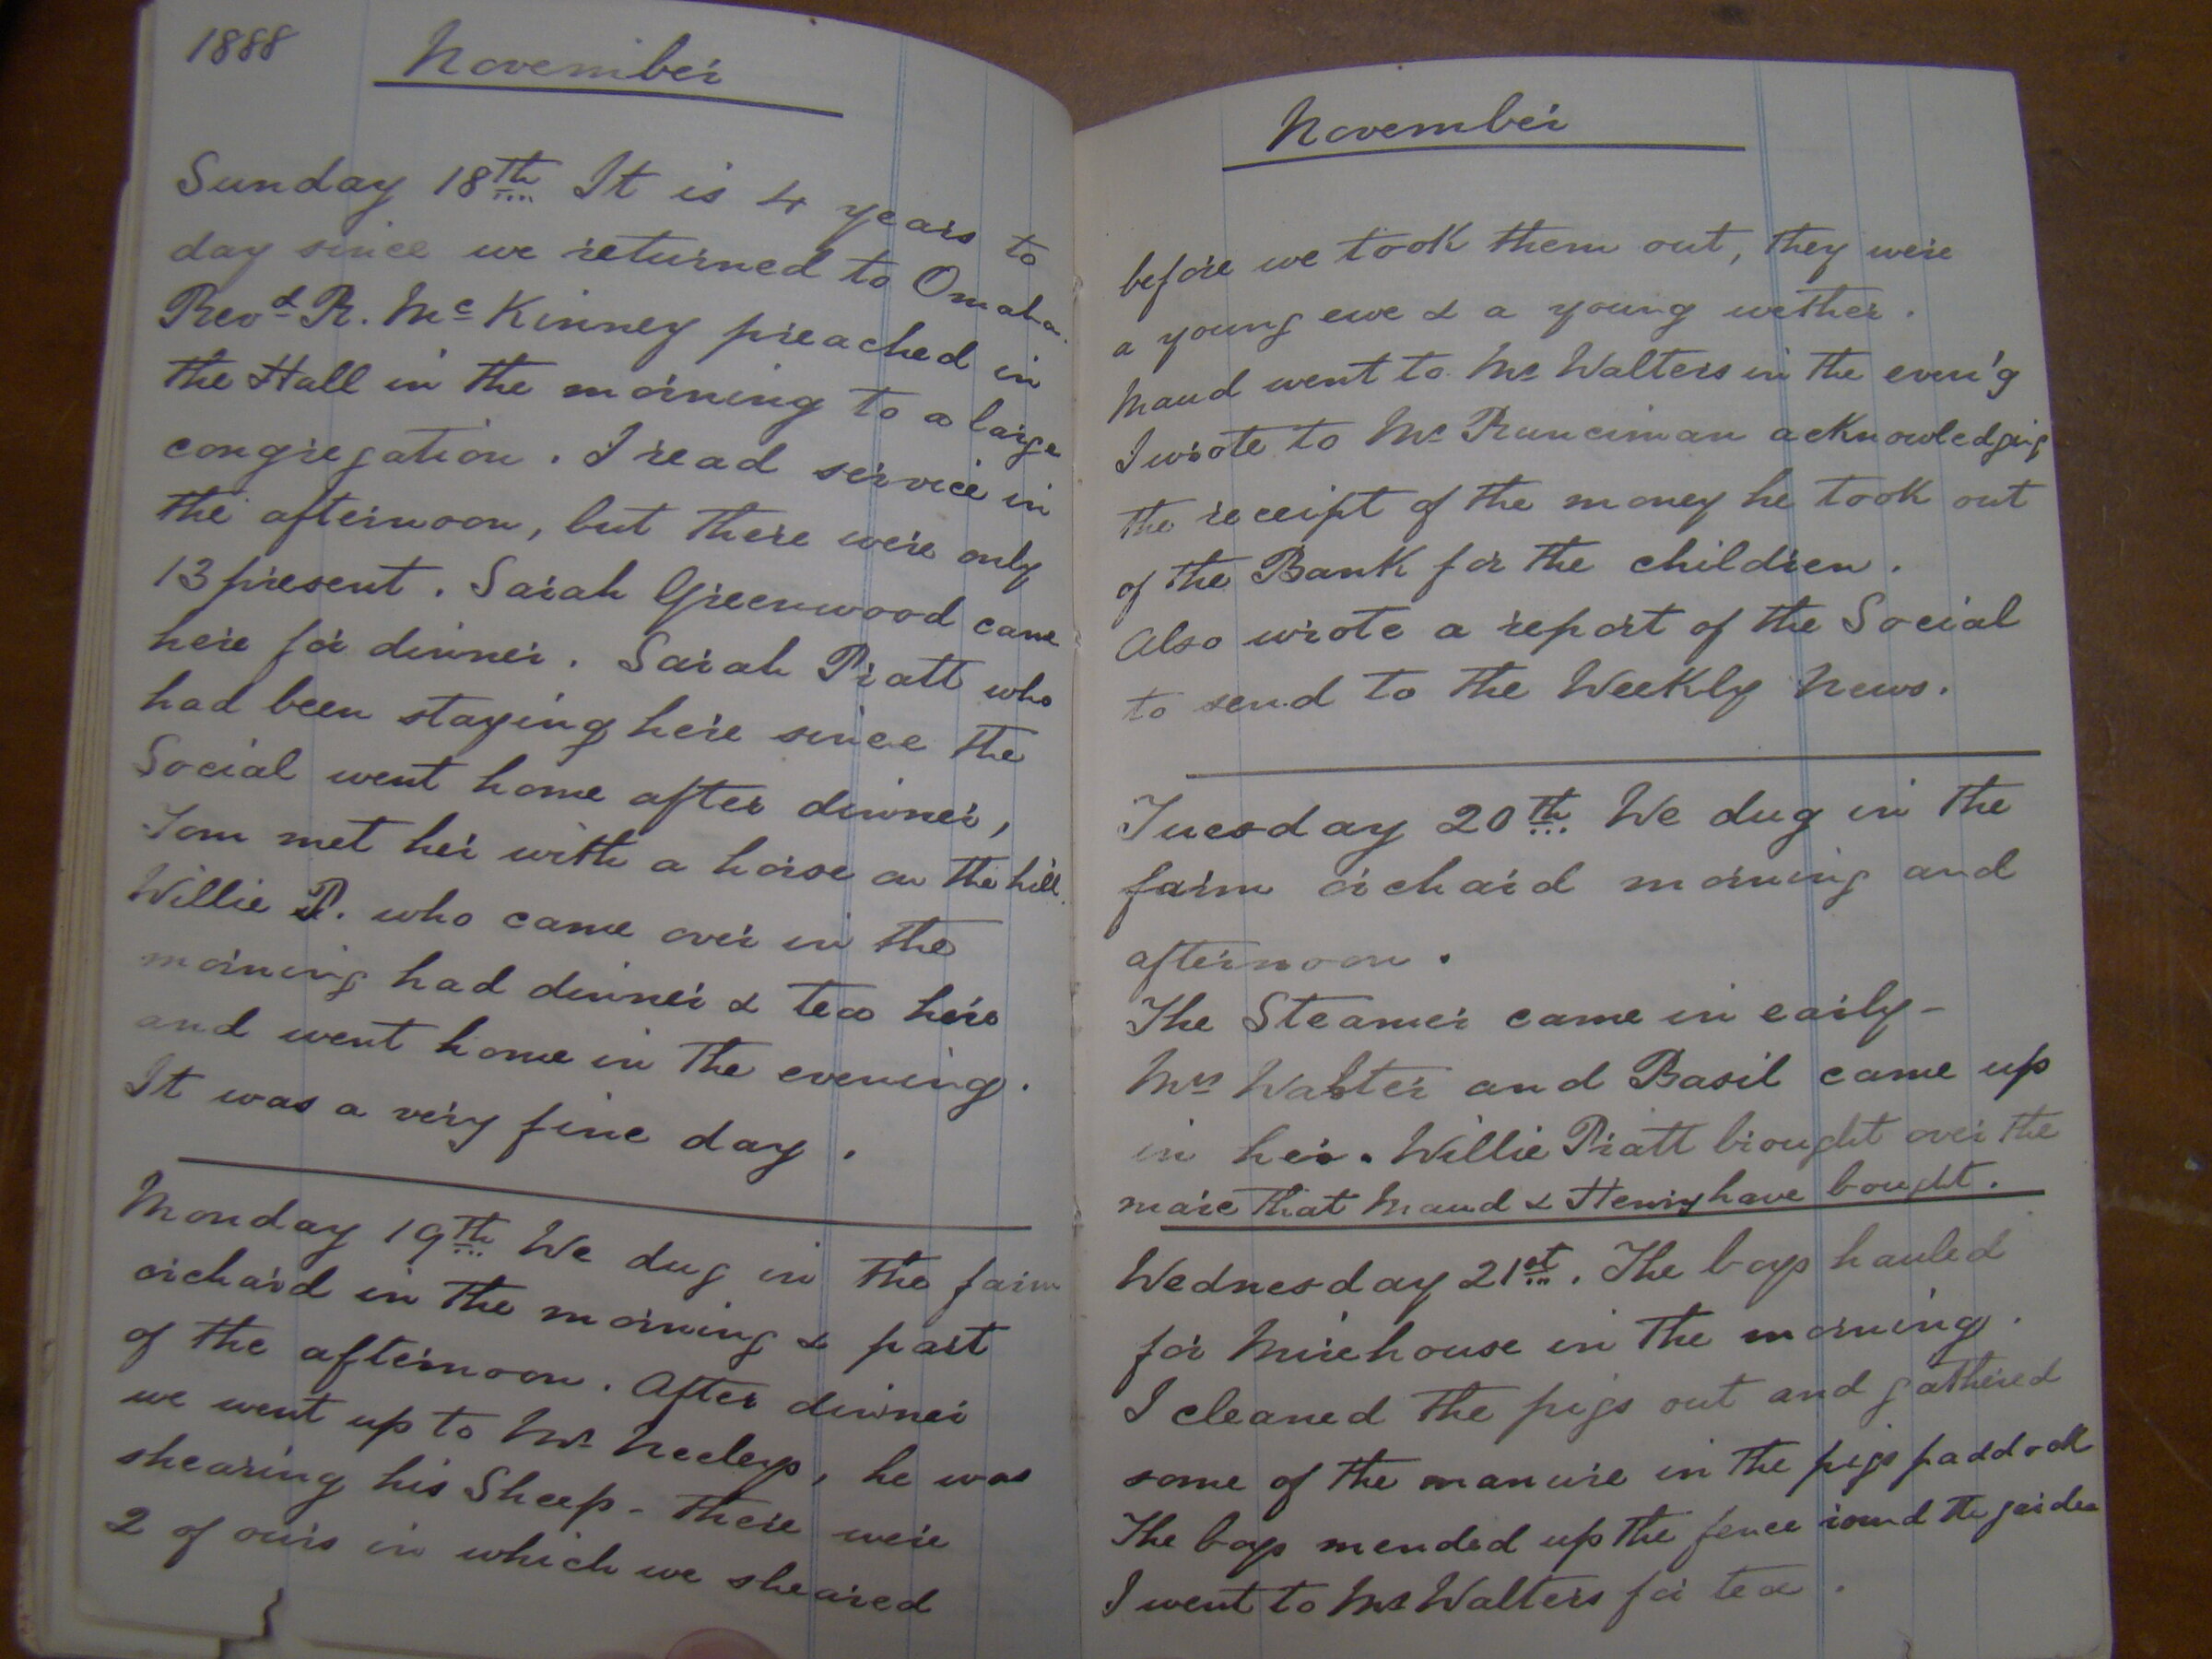 1888
November
Sunday 18th It is 4 years to
day since we returned to Omaha.
Revd R. McKinney preached in
the Hall in the morning to a large
congregation. I read service in
the afternoon, but there were only
13 present. Sarah Greenwood came
here for dinner. Sarah Pratt who
had been staying here since the
Social went home after dinner,
Tom met her with a horse on the hill.
Willie P. who came over in the
morning had dinner & tea here
and went home in the evening.
It was a very fine day.
Monday 19th We dug in the farm
orchard in the morning & part
of the afternoon. After dinner
we went up to Mr Neeleys, he was
shearing his Sheep - There were
2 of ours in which we sheared
November
before we took them out, they were
a young ewe & a young wether.
Maud went to Mr Walters in the even'g
I wrote to Mr Runciman acknowledging
the receipt of the money he took out
of the Bank for the children.
Also wrote a report of the Social
to send to the Weekly News.
Tuesday 20th We dug in the
farm orchard morning and
afternoon.
The Steamer came in early -
Mrs Walter and Basil came up
in her. Willie Pratt brought over the
mare that Maud & Henry have bought.
Wednesday 21st. The boys hauled
for Mirehouse in the morning.
I cleaned the pigs out and gathered
some of the manure in the pigs paddock
The boys mended up the fence round the garden
I went to Mr Walters for tea.